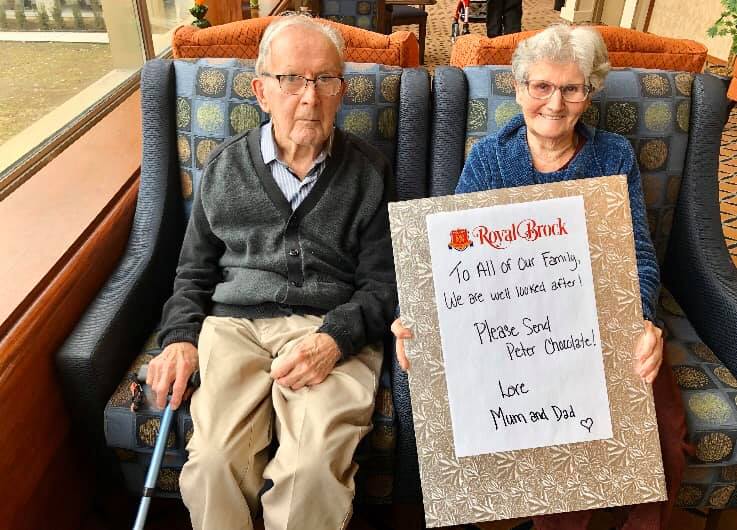 Royal Brock
To All of Our Family,
We are well looked after!
Please Send
Peter Chocolate!
Love
Mum and Dad ♡